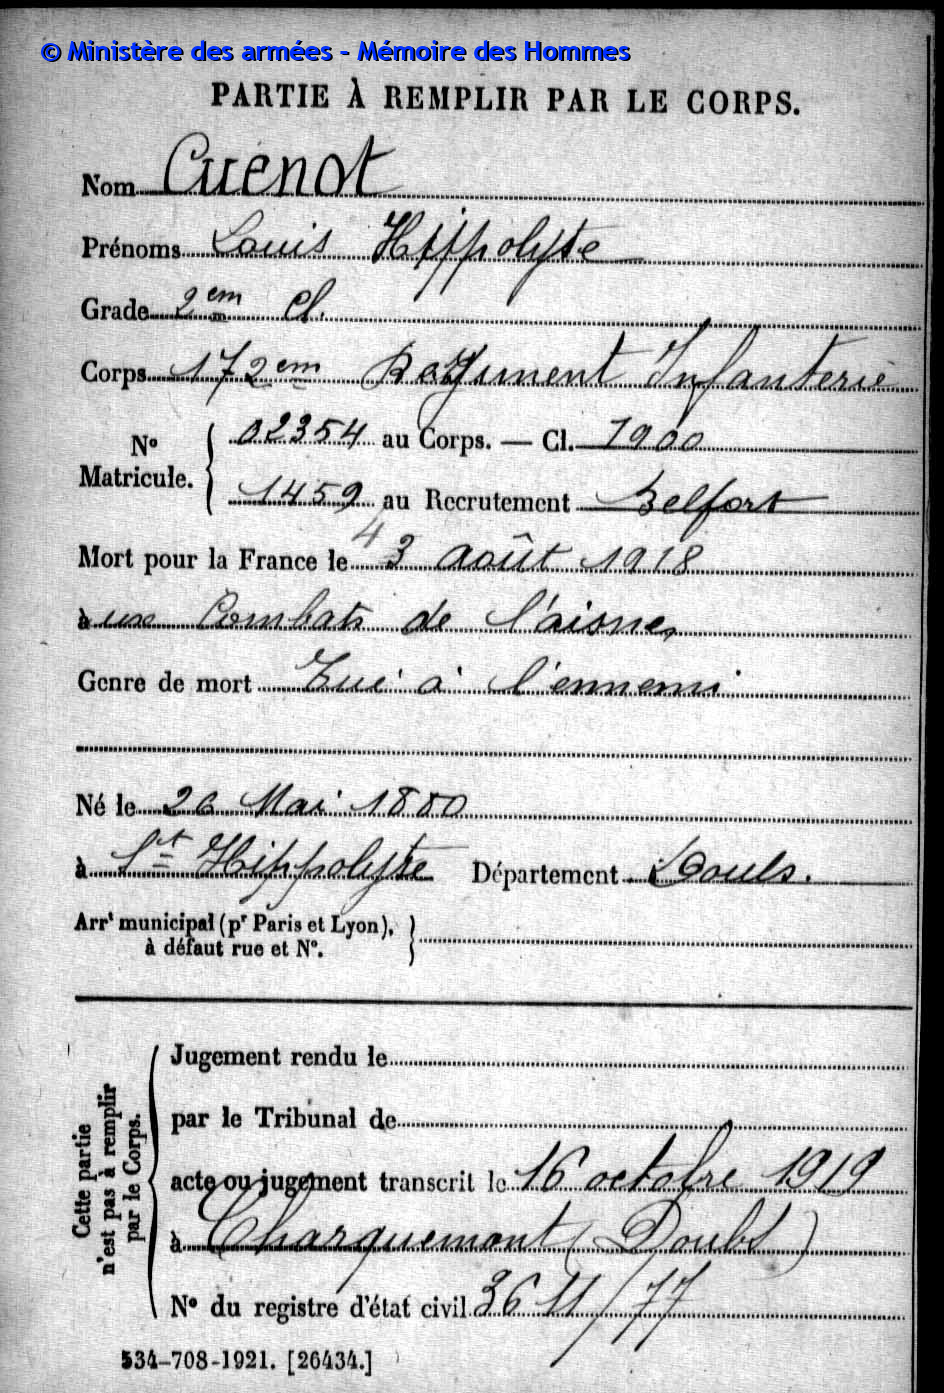 © Ministère des armées - Mémoire des Hommes
PARTIE À REMPLIR PAR LE CORPS.
Nom Cuenot
Prénoms Louis Hippolyte
Grade 2em Cl.
Corps 172em Regiment Infanterie
No Matricule. 02354 au Corps. — Cl. 1900
1459 au Recrutement Belfort
4
Mort pour la France le 3 Août 1918
à ux Combats de l'aisne,
Genre de mort Tué à l'ennemi
Né le 26 Mai 1880
à St Hippolyte Département Doubs.
Arrt municipal (pr Paris et Lyon),
à défaut rue et No.
Cette partie
n'est pas à remplir
par le Corps.
Jugement rendu le
par le Tribunal de
acte ou jugement transcrit le 16 octobre 1919
à Charquemont (Doubs)
No du registre d'état civil 3611/77
534-708-1921. [26434.]